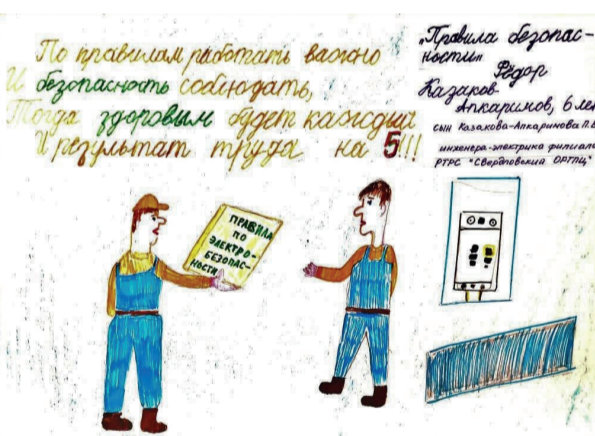 По правилам работать важно
И безопасность соблюдать,
Тогда здоровым будет каждый
И результат труда на 5!!!
„Правила безопас-
ности"
Фёдор
Казаков-
Апкаримов, 6 лет
сын Казакова-Апкаримова П.В
инженера-электрика филиала
РТРС "Свердловский ОРТПЦ"
ПРАВИЛА
ПО
ЭЛЕКТРО-
БЕЗОПАС-
НОСТИ